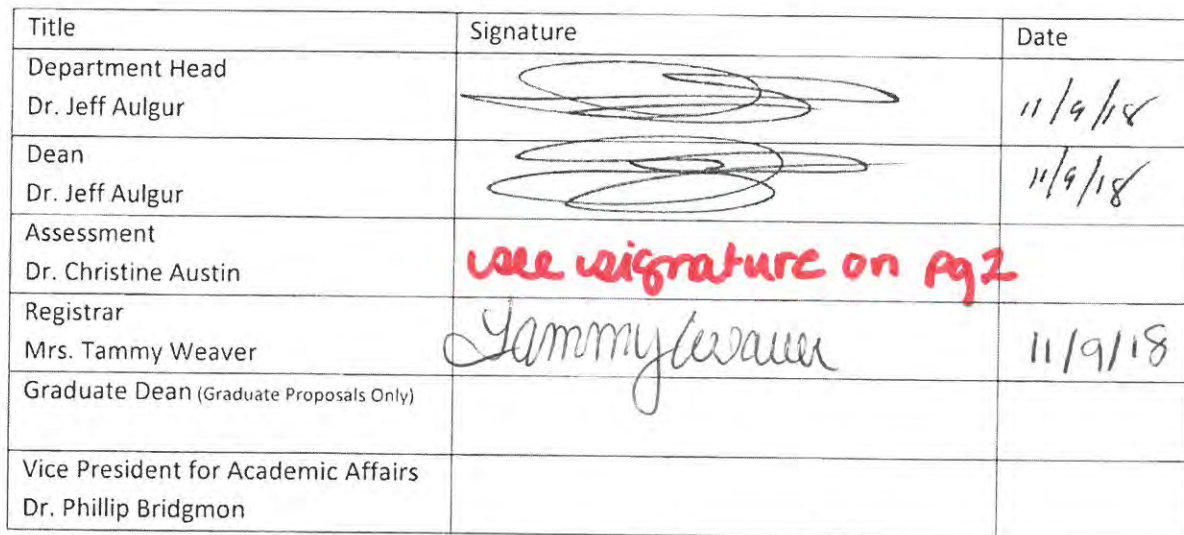 Title Signature Date
Department Head
Dr. Jeff Aulgur 11/9/18
Dean
Dr. Jeff Aulgur 11/9/18
Assessment
Dr. Christine Austin see signature on pg2
Registrar
Mrs. Tammy Weaver Tammy Weaver 11/9/18
Graduate Dean (Graduate Proposals Only)
Vice President for Academic Affairs
Dr. Phillip Bridgmon